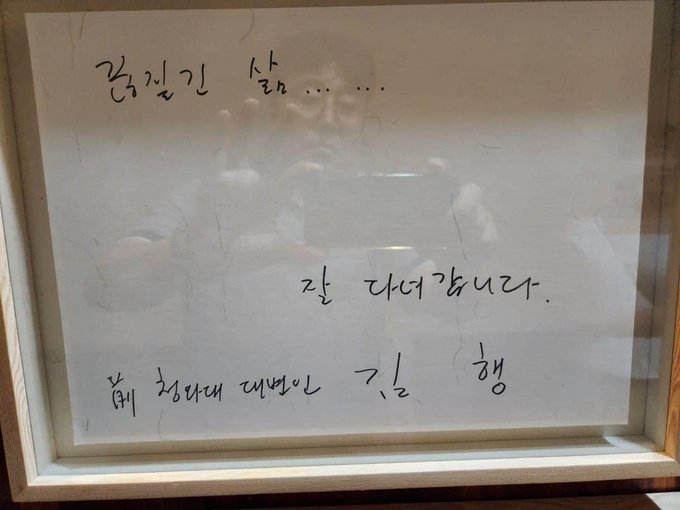 끊질긴 삶... ...
잘 다녀갑니다.
前 청와대 대변인 김 행